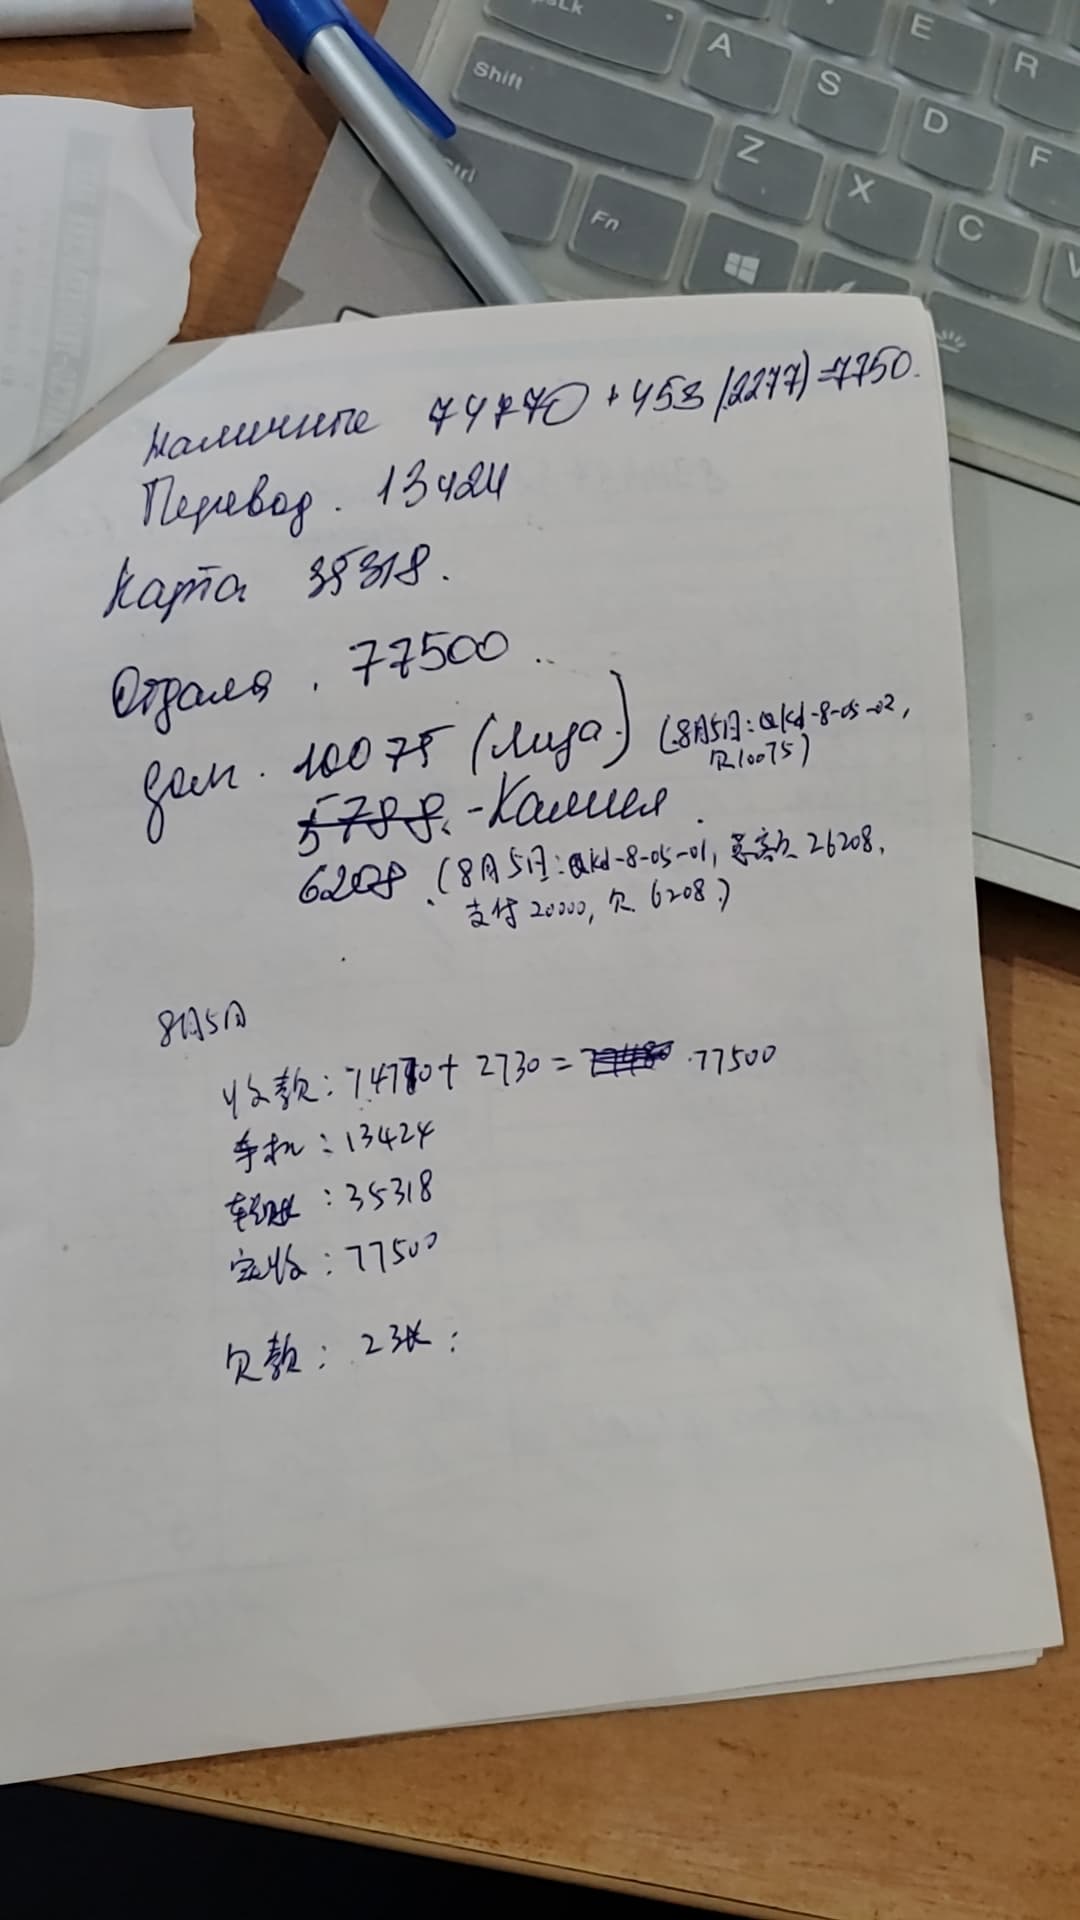 psLk
A
E
R
Shift
S
D
F
Ctrl
Z
X
C
V
Fn
Наличные 74770 + 453 (2277) = 7750.
Перевод. 13424
Карта 35318.
Отдала. 77500
долг. 10075 (Лиза) (8月5日: QKd-8-05-02,
欠10075)
5788. - Камила
6208. (8月5日: QKd-8-05-01, 总款 26208,
支付 20000, 欠 6208.)
8月5日
收款: 74770 + 2730 = 77500
手机: 13424
转账: 35318
实收: 77500
欠款: 2张: